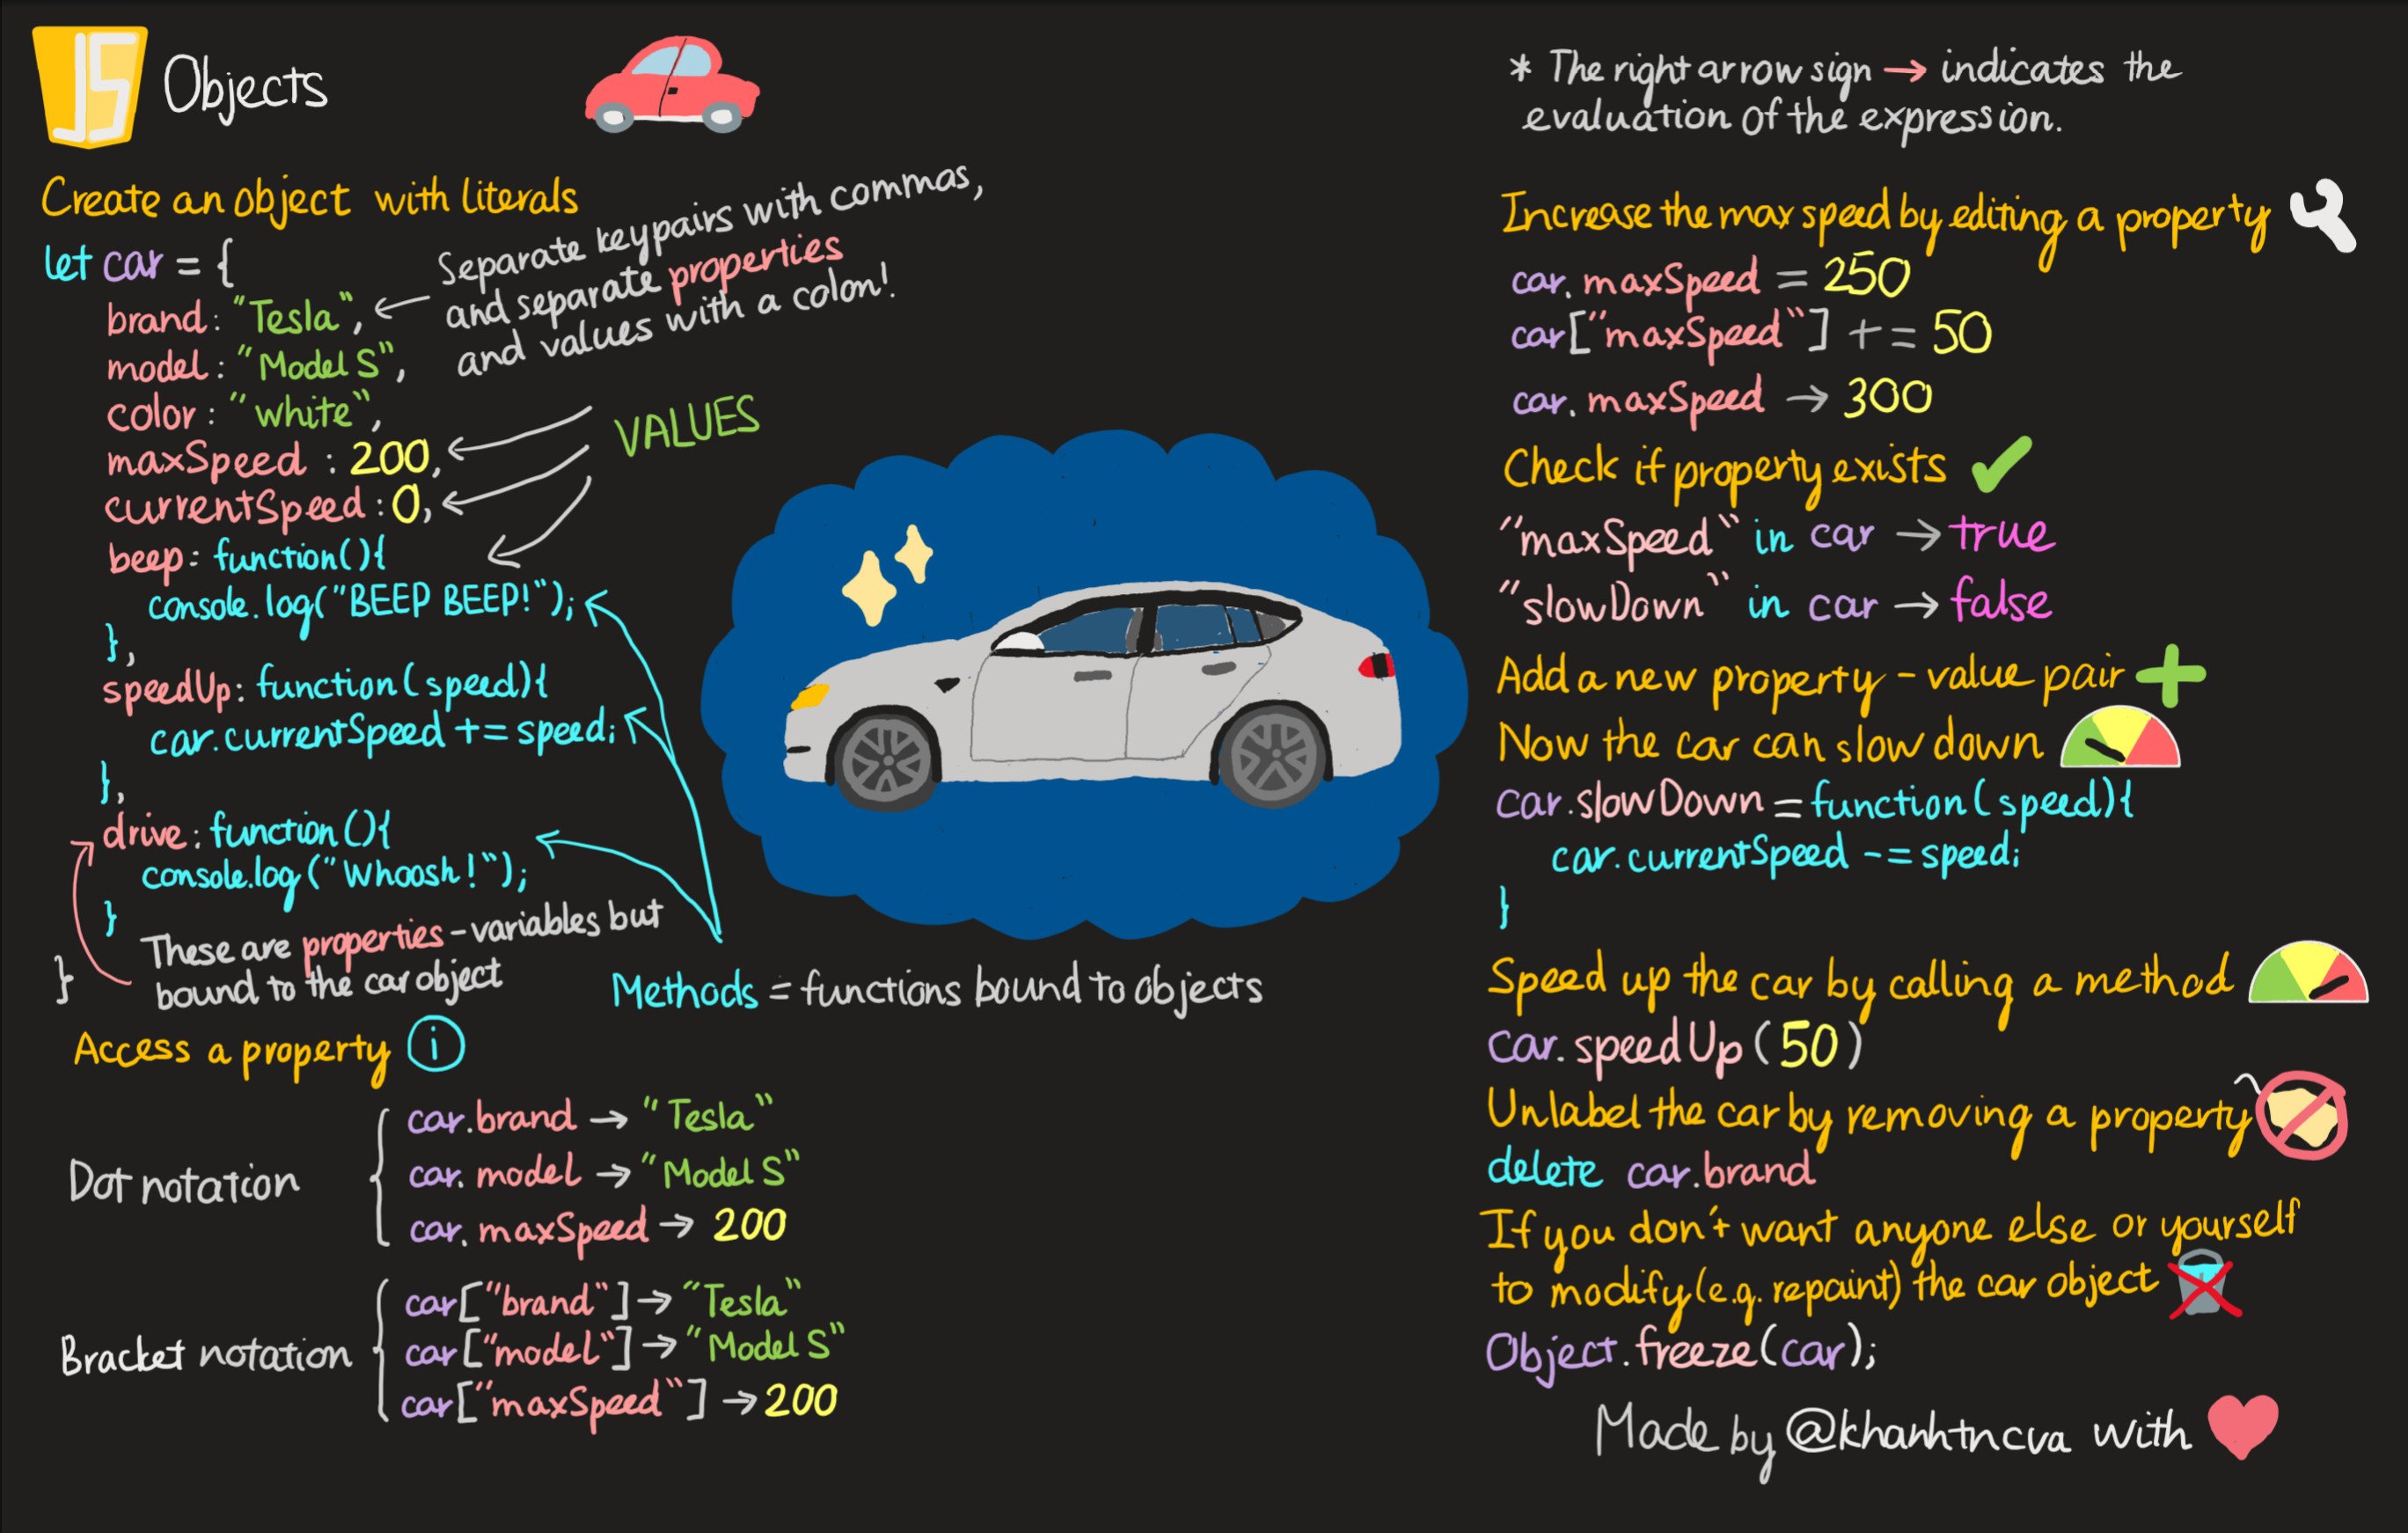 JS Objects
Create an object with literals
let car = {
brand: "Tesla",
model: "Model S",
color: "white",
maxSpeed : 200,
currentSpeed : 0,
beep: function(){
console.log("BEEP BEEP!");
},
speedUp: function(speed){
car.currentSpeed += speed;
},
drive: function(){
console.log("Whoosh!");
}
}
Separate keypairs with commas,
and separate properties
and values with a colon!
VALUES
These are properties - variables but
bound to the car object
Methods = functions bound to objects
Access a property i
Dot notation
car.brand → "Tesla"
car.model → "Model S"
car.maxSpeed → 200
Bracket notation
car["brand"] → "Tesla"
car["model"] → "Model S"
car["maxSpeed"] → 200
* The right arrow sign → indicates the
evaluation of the expression.
Increase the max speed by editing a property
car.maxSpeed = 250
car["maxSpeed"] += 50
car.maxSpeed → 300
Check if property exists
"maxSpeed" in car → true
"slowDown" in car → false
Add a new property - value pair
Now the car can slow down
car.slowDown = function(speed){
car.currentSpeed -= speed;
}
Speed up the car by calling a method
car.speedUp(50)
Unlabel the car by removing a property
delete car.brand
If you don't want anyone else or yourself
to modify (e.g. repaint) the car object
Object.freeze(car);
Made by @khanhtncva with